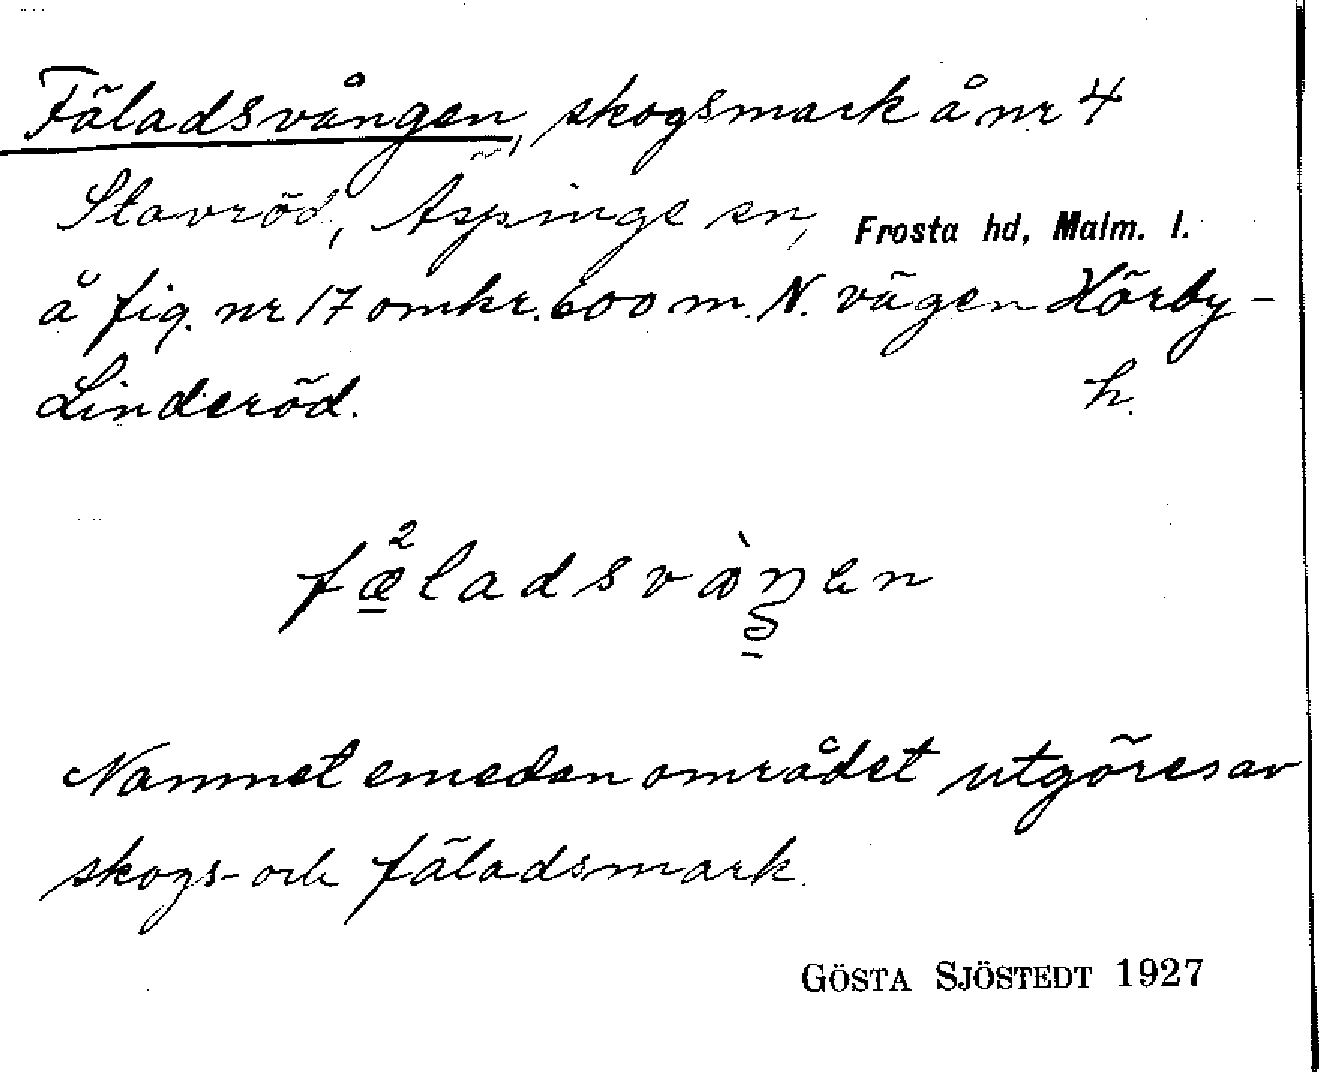 Fäladsvången, skogsmark å nr 4
Stavröd, Äspinge sn, Frosta hd, Malm. l.
å fig. nr 17 omkr. 600 m. N. vägen Hörby-
Linderöd. h.
fæ̱²ladsvàŋen
Namnet emedan området utgöres av
skogs- och fäladsmark.
GÖSTA SJÖSTEDT 1927